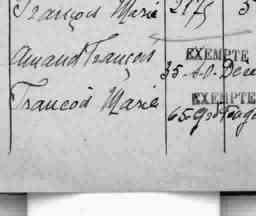 François Marie 2175
Amand François EXEMPTE
35-A.D. Dece
Francois Marie EXEMPTE
65